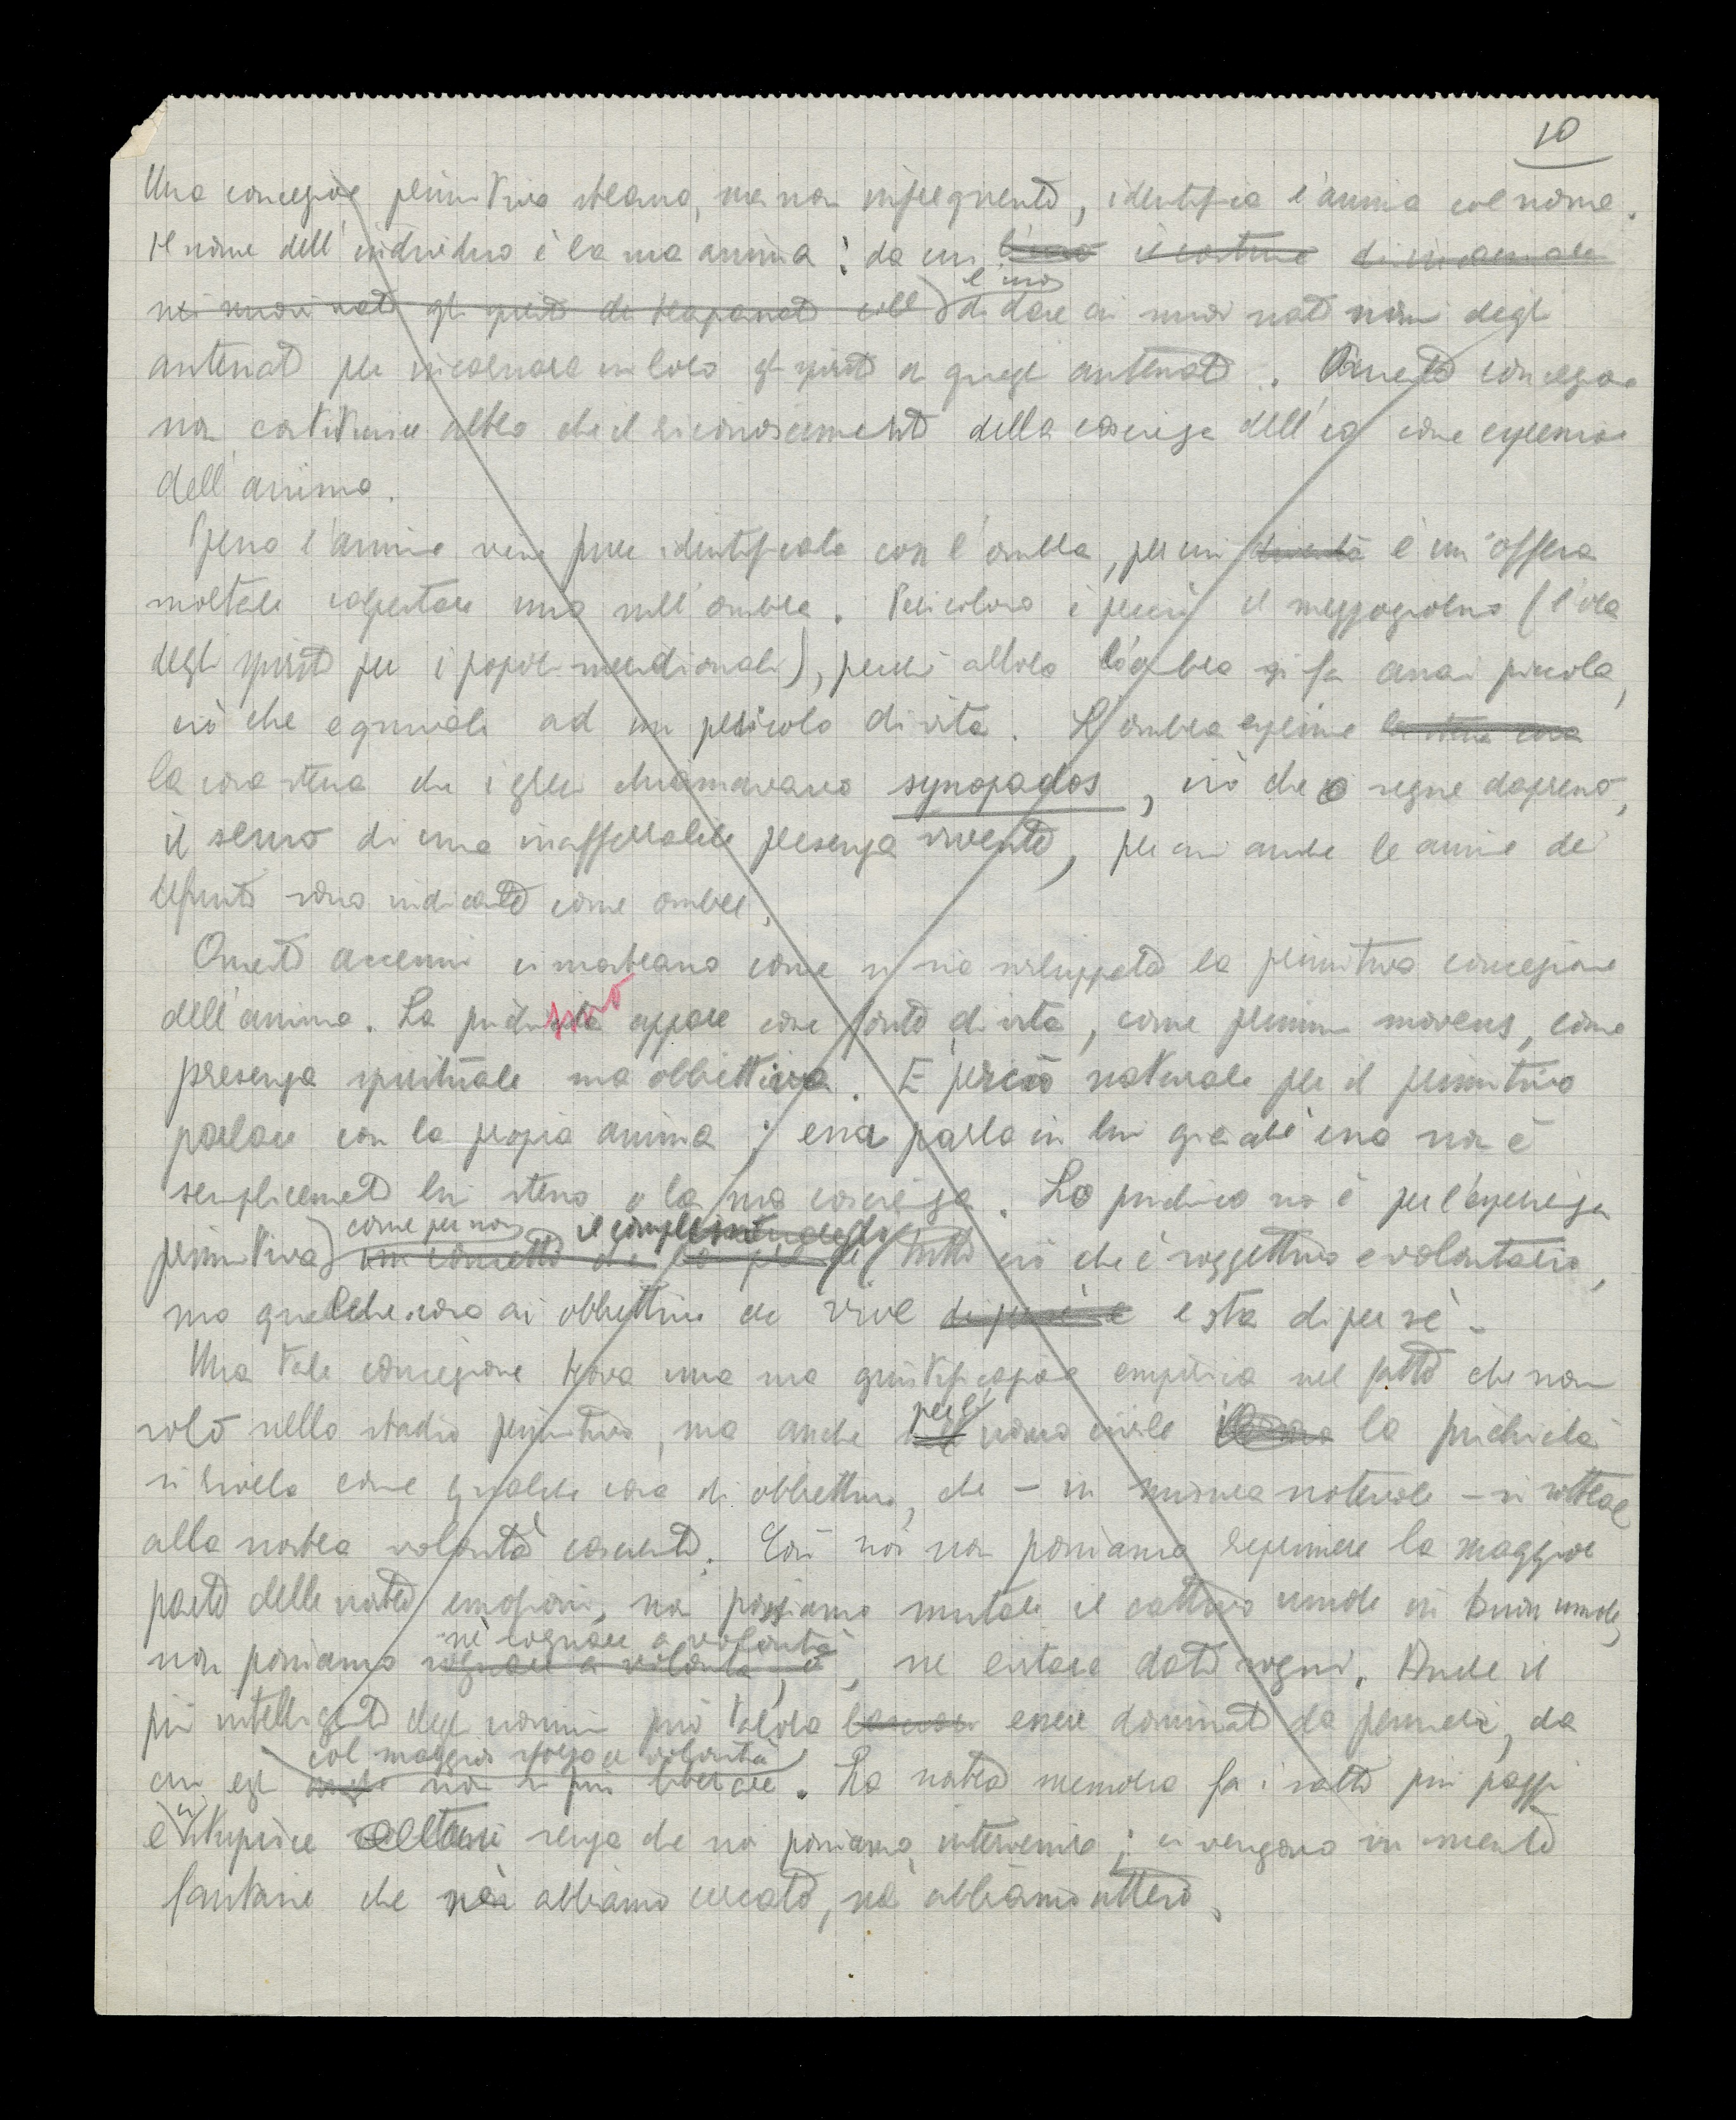 10
Una concezione primitiva strana, ma non infrequente, identifica l'anima col nome.
Il nome dell'individuo è la sua anima: da cui l'uso il costume di incarnare
nei nuovi nati gli spiriti dei trapassati coll l'uso di dare ai nuovi nati nomi degli
antenati per incarnare in loro gli spiriti di quegli antenati. Questa concezione
non costituisce altro che il riconoscimento della coscienza dell'io come espressione
dell'anima.
Spesso l'anima viene pure identificata con l'ombra, per cui diventa è un'offesa
mortale calpestare uno sull'ombra. Pericoloso è perciò il mezzogiorno (l'ora
degli spiriti per i popoli meridionali), perché allora l'ombra si fa assai piccola,
ciò che equivale ad un pericolo di vita. L'ombra esprime la stessa cosa
la cosa stessa che i greci chiamavano synopados, ciò che segue dappresso,
il senso di una inafferrabile presenza vivente, per cui anche le anime dei
defunti sono indicate come ombre.
Questi accenni ci mostrano come si sia sviluppata la primitiva concezione
dell'anima. La psiche appare come fonte di vita, come primum movens, come
presenza spirituale ma obbiettiva. È perciò naturale per il primitivo
parlare con la propria anima; essa parla in lui giacché essa non è
semplicemente lui stesso o la sua coscienza. La psiche non è per l'esperienza
come per noi il complesso di
primitiva un concetto che tutto ciò che è soggettivo e volontario,
ma qualche cosa di obbiettivo che vive di per sé e e sta di per sé.
Una tale concezione trova una sua giustificazione empirica nel fatto che non
per l'
solo nello stadio primitivo, ma anche uomo civile la psichicità
si rivela come qualche cosa di obbiettivo, che - in misura notevole - si sottrae
alla nostra volontà cosciente. Così noi non possiamo reprimere la maggior
parte delle nostre emozioni, non possiamo mutare il cattivo umore in buon umore,
né sognare a volontà
non possiamo sognare a volontà, o, né evitare dati sogni. Anche il
più intelligente degli uomini può talora essere dominato da pensieri, da
col maggior sforzo di volontà
cui egli non si può liberare. La nostra memoria fa i salti più pazzi
e ci stupisce senza che noi possiamo intervenire; ci vengono in mente
fantasie che non abbiamo cercato, né abbiamo atteso.